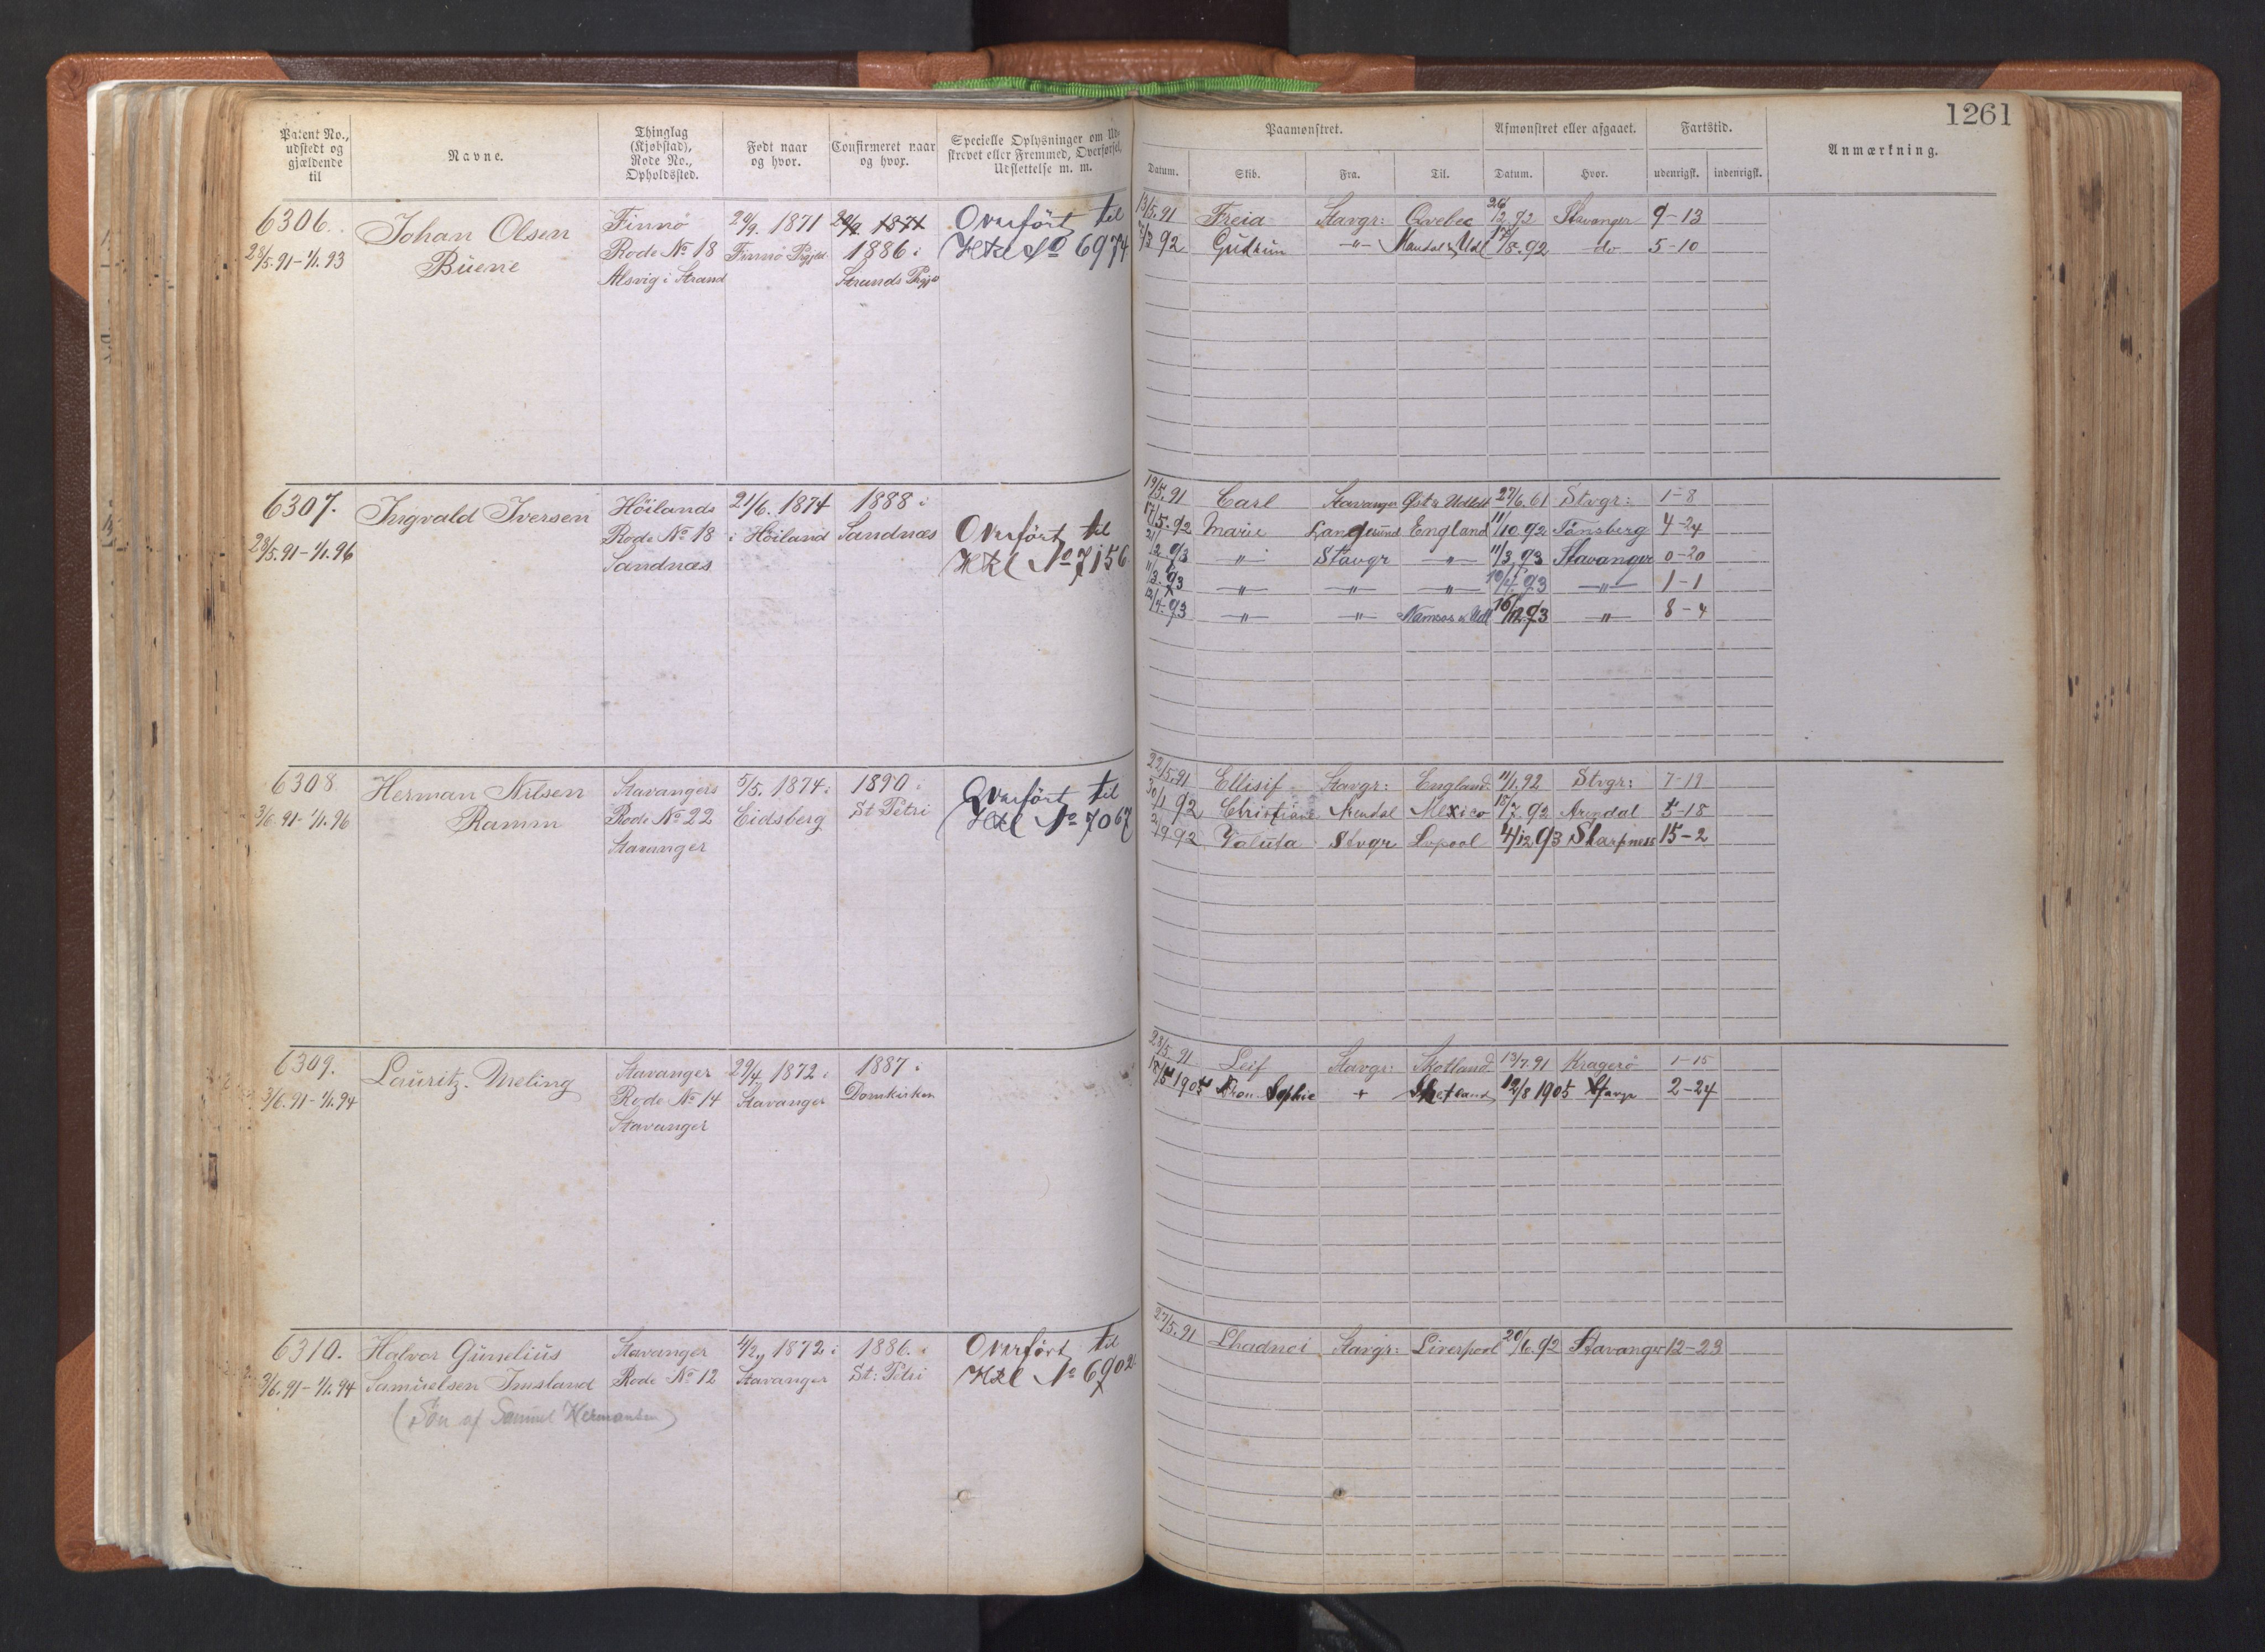 1261
Patent No., udstedt og gjældende til
Navne.
Thinglag (Kjøbstad), Rode No., Opholdssted.
Født naar og hvor.
Confirmeret naar og hvor.
Specielle Oplysninger om Udskrevet eller Fremmed, Overførsel, Udslettelse m. m.
Paamønstret.
Afmønstret eller afgaaet.
Fartstid.
Anmærkning.
Datum. Skib. Fra. Til. Datum. Hvor. udenrigsk. indenrigsk.
6306.
28/5.91-1/1.93
Johan Olsen
Buene
Finnø
Rode No 18
Alsvig i Strand
29/9. 1871
Finnø Prgjld.
29/9 1871
1886 i
Strands Prgjd
Overført til
Hkl No 6974
13/5.91 Freia Stavgr: Qvebec 26/2.92 Stavanger 9-13
92 Gudrun -"- Mandal & Udl 92 do 5-10
6307.
28/5.91-1/1.96
Ingvald Iversen
Höilands
Rode No 18
Sandnæs
21/6. 1874
i Höiland
1888 i
Sandnæs
Overført til
Hkl No 7156
19/5.91 Carl Stavanger Øst & Udlldt 27/6.61 Stvgr: 1-8
17/5.92 Marie Langesund England 11/10 92 Tönsberg 4-24
21/2.93 -"- Stavgr -"- 11/3.93 Stavanger 0-20
11/3.93 -"- -"- -"- 10/4 93 -"- 1-1
12/4.93 -"- -"- Namsos & Udl 16/12.93 -"- 8-4
6308
3/6.91-1/1.96
Herman Nilsen
Ramm
Stavangers
Rode No 22
Stavanger
5/5. 1874 i
Eidsberg
1890 i
St Petri
Overført til
Hkl No 7067
22/5.91 Ellisif Stavgr: England 11/1.92 Stvgr: 7-19
30/1 92 Christiane Arendal Mexico 18/7.92 Arendal 5-18
2/9 92 Valuta Stvgr Lvpool 4/12 93 Sharpness 15-2
6309.
3/6.91-1/1.94
Lauritz Meling
Stavanger
Rode No 14
Stavanger
29/4 1872 i
Stavanger
1887 i
Domkirken
23/5.91 Leif Stavgr: Skotland 13/7.91 Kragerö 1-15
18/5 1905 Kron. Sophie + Shetland 12/8 1905 Stavgr 2-24
6310.
3/6.91-1/1.94
Halvor Gunelius
Samuelsen Imsland
(Søn af Samuel Hermansen)
Stavanger
Rode No 12
4/2 1872 i
Stavanger
1886 i
St: Petri
Overført til
Hkl No 6902
27/5.91 Lhadnoi Stavgr: Liverpool 20/6.92 Stavanger 12-23